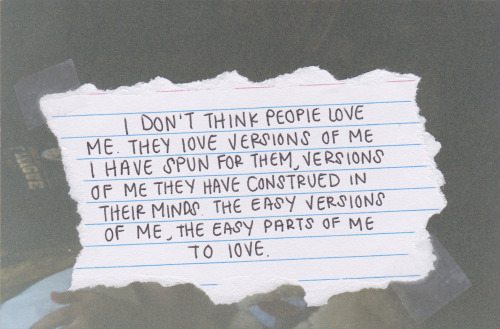 I DON'T THINK PEOPlE LOVE
ME. THEY lOVE VERSIONS OF ME
I HAVE SPUN FOR THEM, VERSIONS
OF ME THEY HAVE CONSTRUED IN
THEIR MINDS. THE EASY VERSIONS
OF ME, THE EASY PARTS OF ME
TO lOVE.